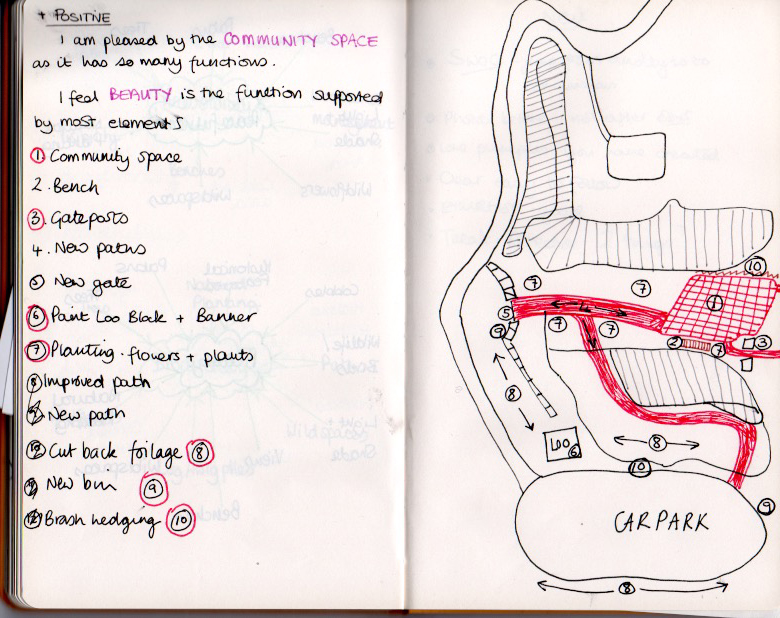 + POSITIVE
I am pleased by the COMMUNITY SPACE
as it has so many functions.
I feel BEAUTY is the function supported
by most elements
1. Community space
2. Bench
3. Gateposts
4. New paths
5 New gate
6 Paint Loo Block + Banner
7 Planting - flowers + plants
Improved path
New path
Cut back foilage 8
New bin 9
Brash hedging 10
10
7
7
1
5
4
9
7
7
2
7
3
8
LOO
6
8
10
9
CARPARK
8